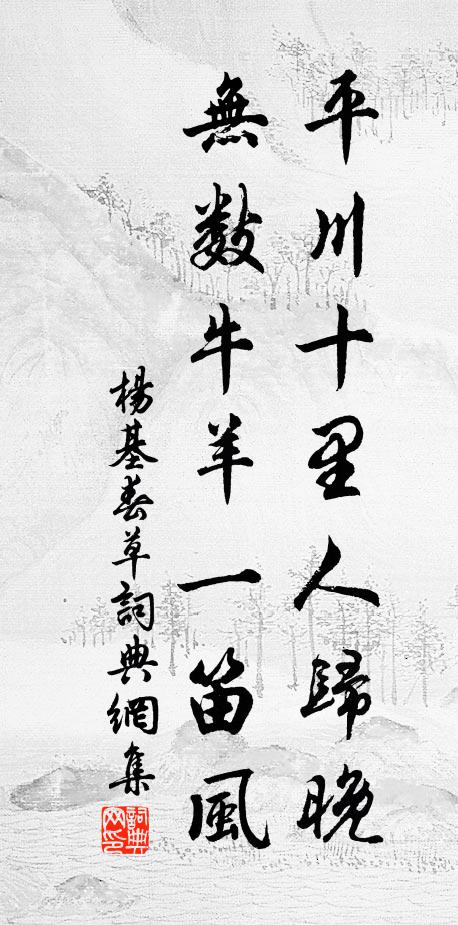 平川十里人歸晚
無數牛羊一笛風
楊基春草詞典網集
詞典
网印